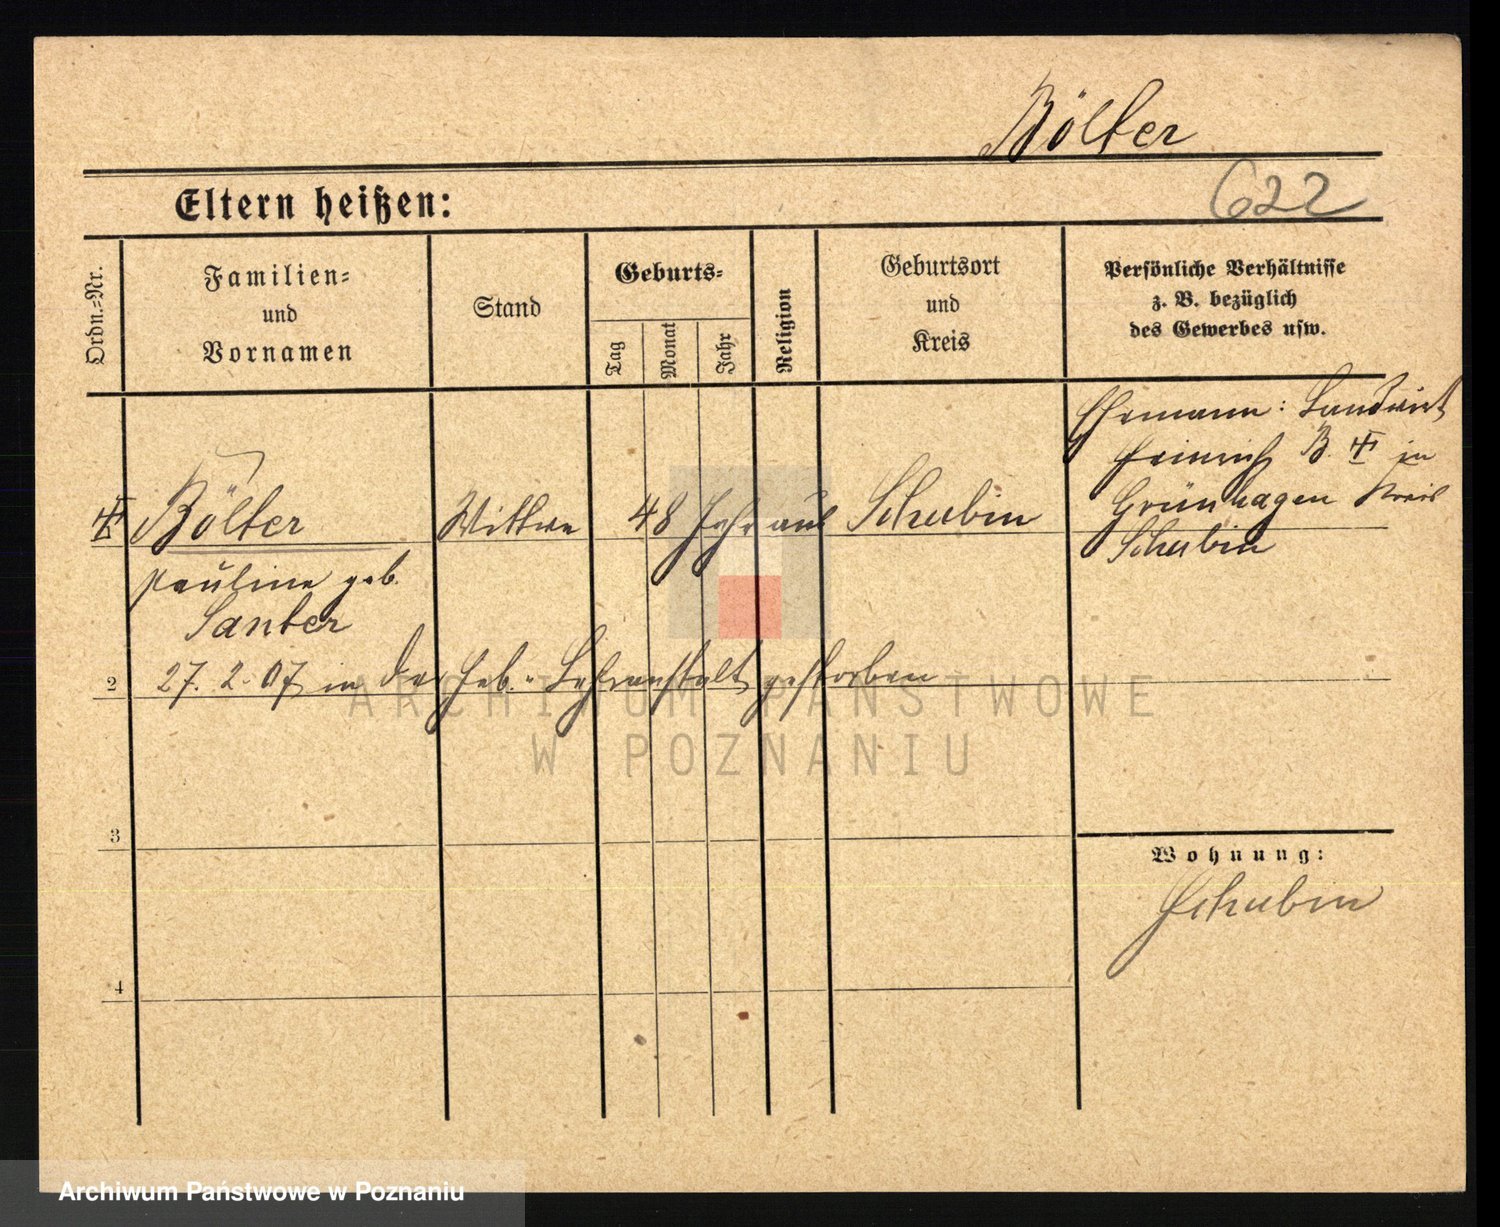 Bölter
622
Eltern heißen:
Ordn.-Nr.
Familien-
und
Vornamen
Stand
Geburts-
Tag
Monat
Jahr
Religion
Geburtsort
und
Kreis
Persönliche Verhältnisse
z. B. bezüglich
des Gewerbes usw.
Ehemann: Landwirt
Heinrich B. in
Grünhagen Kreis
Schubin
Bölter Wittwe 48 Jahr aus Schubin
Pauline geb.
27. 2. 07 in der Heb.-Lehranstalt gestorben
2
3
4
Wohnung:
Schubin
ARCHIWUM PAŃSTWOWE
W POZNANIU
Archiwum Państwowe w Poznaniu